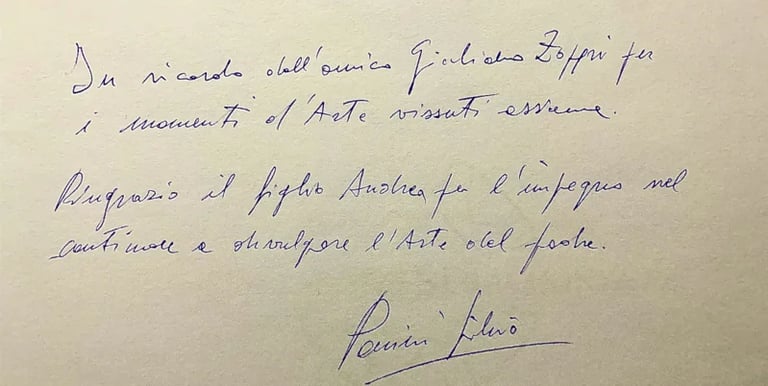 In ricordo dell'amico Giuliano Zoppi per
i momenti d'Arte vissuti assieme.
Ringrazio il figlio Andrea per l'impegno nel
continuare a divulgare l'Arte del padre.
Silvio